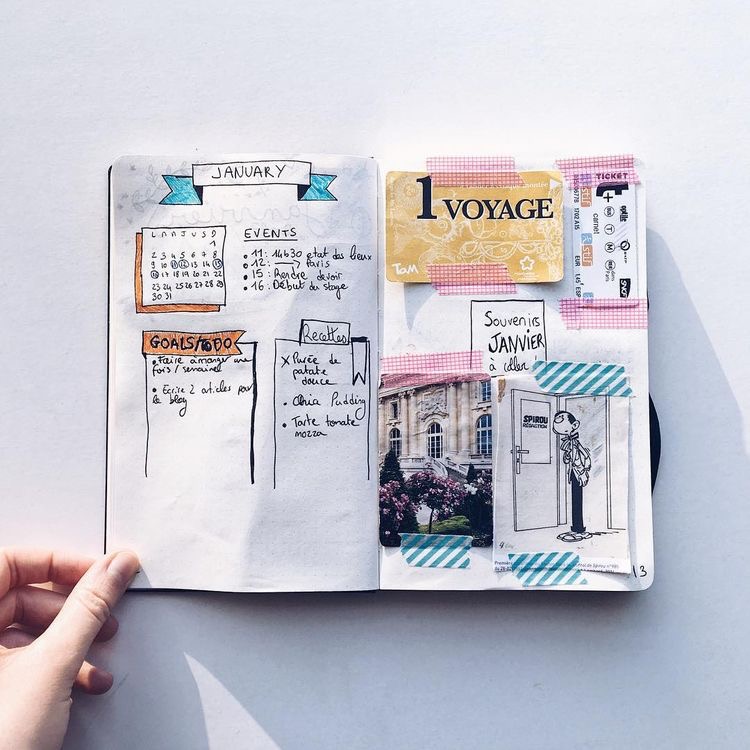 JANUARY
L M M J V S D
1
2 3 4 5 6 7 8
9 10 11 12 13 14 15
16 17 18 19 20 21 22
23 24 25 26 27 28 29
30 31
EVENTS
• 11 : 14h30 etat des lieux
• 12 : → Paris
• 15 : Rendre devoir
• 16 : Début du stage
GOALS/TODO
• Faire à manger une
fois / semaine!
• Ecrire 2 articles pour
le blog
Recettes
X Purée de
patate
douce
• Chia Pudding
• Tarte tomate
mozza
1 VOYAGE
Tam
TICKET
t+
carnet
Souvenirs
JANVIER
à coller!
SPIROU
RÉDACTION
13